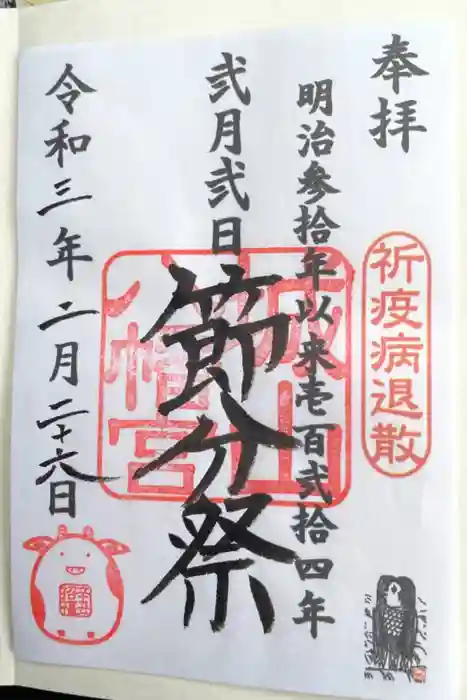 奉拝
祈疫病退散
明治参拾年以来壱百弐拾四年
弐月弐日
節分祭
城山
八幡宮
令和三年二月二十六日